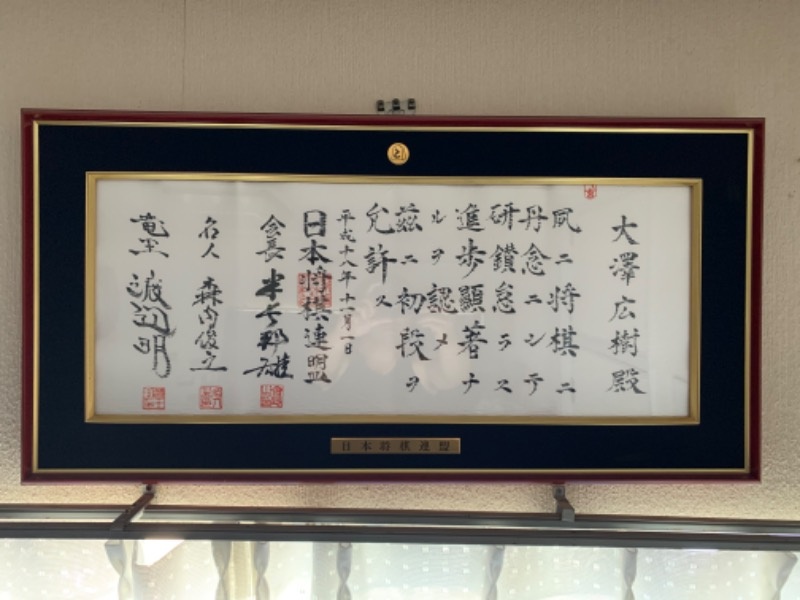 大澤広樹殿
夙ニ将棋ニ
丹念ニシテ
研鑚怠ラス
進歩顯著ナ
ルヲ認メ
茲ニ初段ヲ
允許ス
平成十八年十一月一日
日本将棋連盟
会長 米長邦雄
名人 森内俊之
竜王 渡辺明
日本将棋連盟